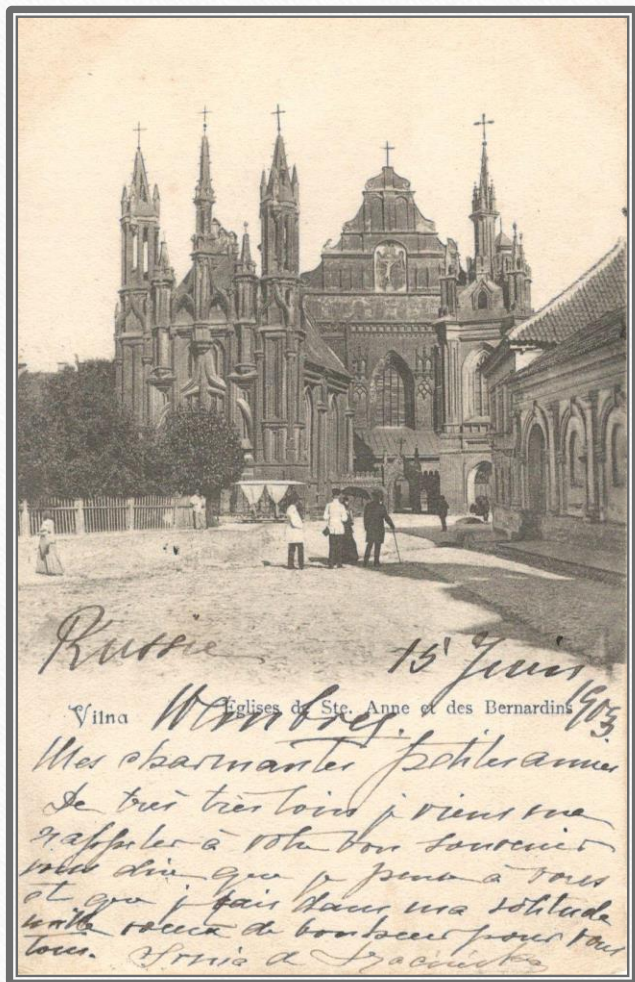 Russie 15 Juin
1903
Vilna Églises de Ste. Anne et des Bernardins
Mes charmantes petites amies
De très très loin je viens me
rappeler à votre bon souvenir
vous dire que je pense à vous
et que je fais dans ma solitude
mille voeux de bonheur pour vous
tous. Sonia de